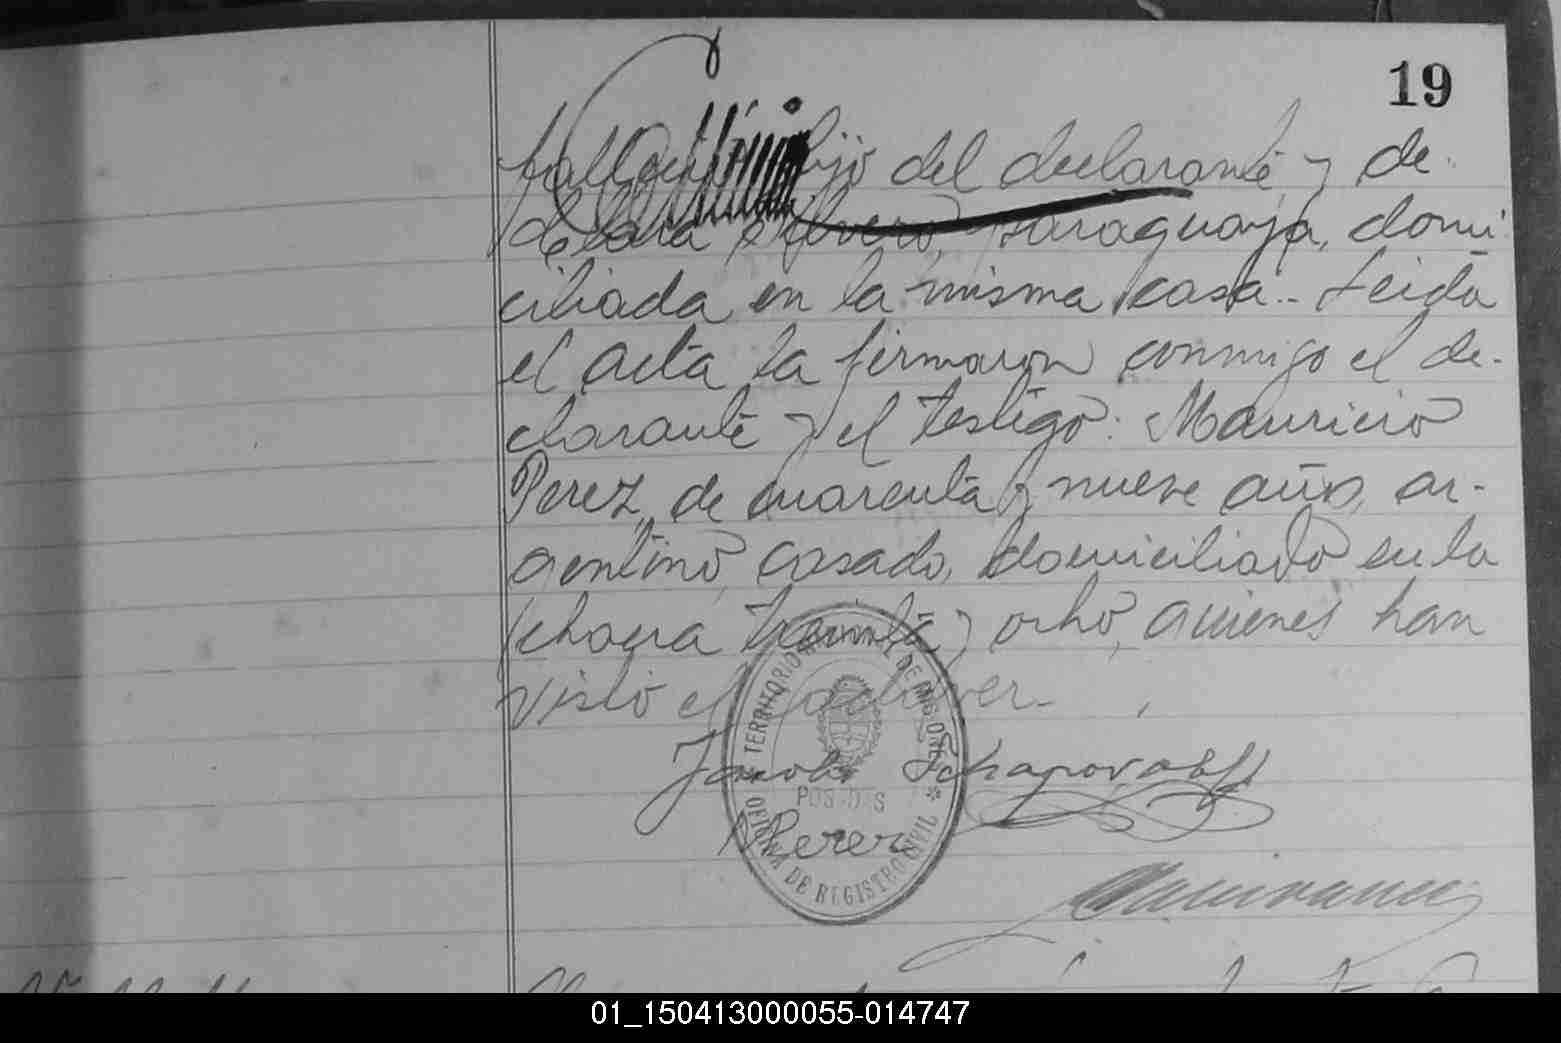 19
hijo del declarante y de
paraguaya, domi-
ciliada en la misma casa.. Leida
el acta la firmaron conmigo el de-
clarante y el testigo: Mauricio
Perez, de cuarenta y nueve años, ar-
gentino, casado, domiciliado en la
chacra treinta y ocho, quienes han
visto el cadaver.
OFICINA DE REGISTRO CIVIL
TERRITORIO
DE MISIONES
POSADAS
Jacobo Schapovaloff
Perez
01_150413000055-014747